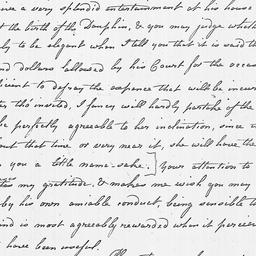 give a very splendid entertainment at his house
at the birth of the Dauphin, & you may judge whether
ly to be elegant when I tell you that it is said th
nd dollars allowed by his Court for the occas
ficient to defray the expence that will be incur
ter tho' invited, I fancy will hardly partake of the
be perfectly agreeable to her inclination, since a
out that time or very near it, she will have the
you a little name-sake.] Your attention to
my gratitude, & makes me wish you may
by his own amiable conduct, being sensible t
nd is most agreeably rewarded when it percei
have been useful.